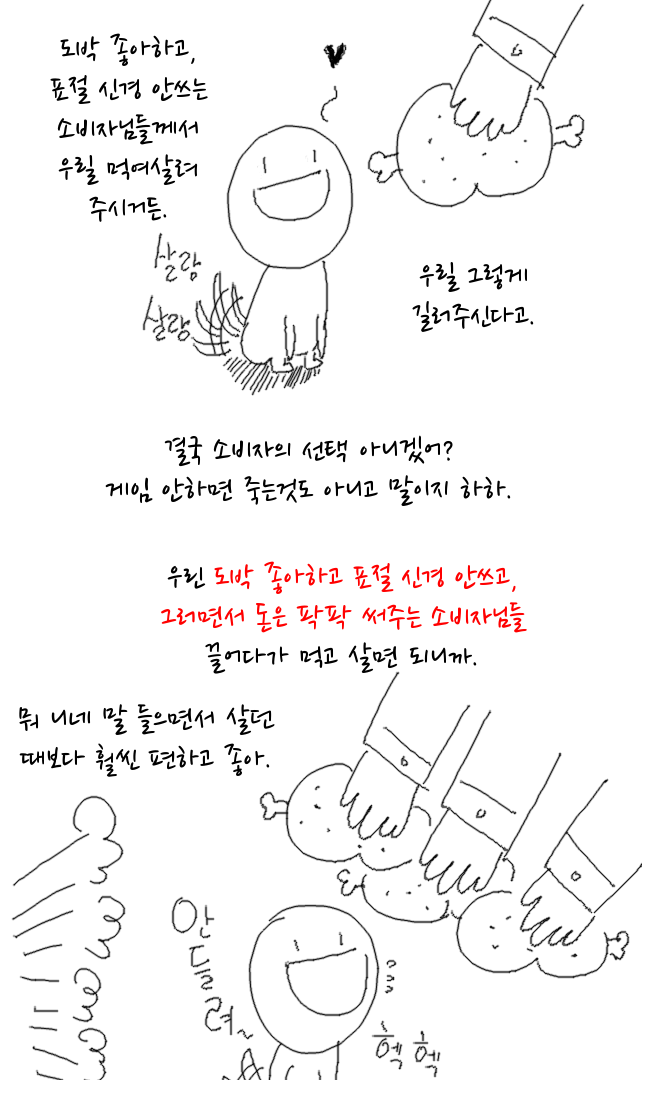 도박 좋아하고,
표절 신경 안쓰는
소비자님들께서
우릴 먹여살려
주시거든.
살랑
살랑
우릴 그렇게
길러주신다고.
결국 소비자의 선택 아니겠어?
게임 안하면 죽는것도 아니고 말이지 하하.
우린 도박 좋아하고 표절 신경 안쓰고,
그러면서 돈은 팍팍 써주는 소비자님들
끌어다가 먹고 살면 되니까.
뭐 니네 말 들으면서 살던
때보다 훨씬 편하고 좋아.
안들려~
헥 헥